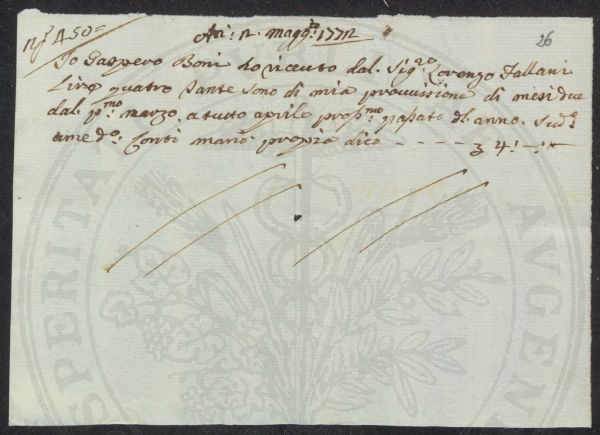 nº 450=
Adi: 2. Magg:º 1772
26
Io Gaspero Boni ho riceuto dal. Sigre Lorenzo Fallani
Lire quatro Tante sono di mia prouuisione di mesi due
dal. pmo marzo. a tutto aprile prosmo pasato dl. anno. sudº
ame dº. Conti mano propia dico - - - - 4:
SPERITA
AVGEN